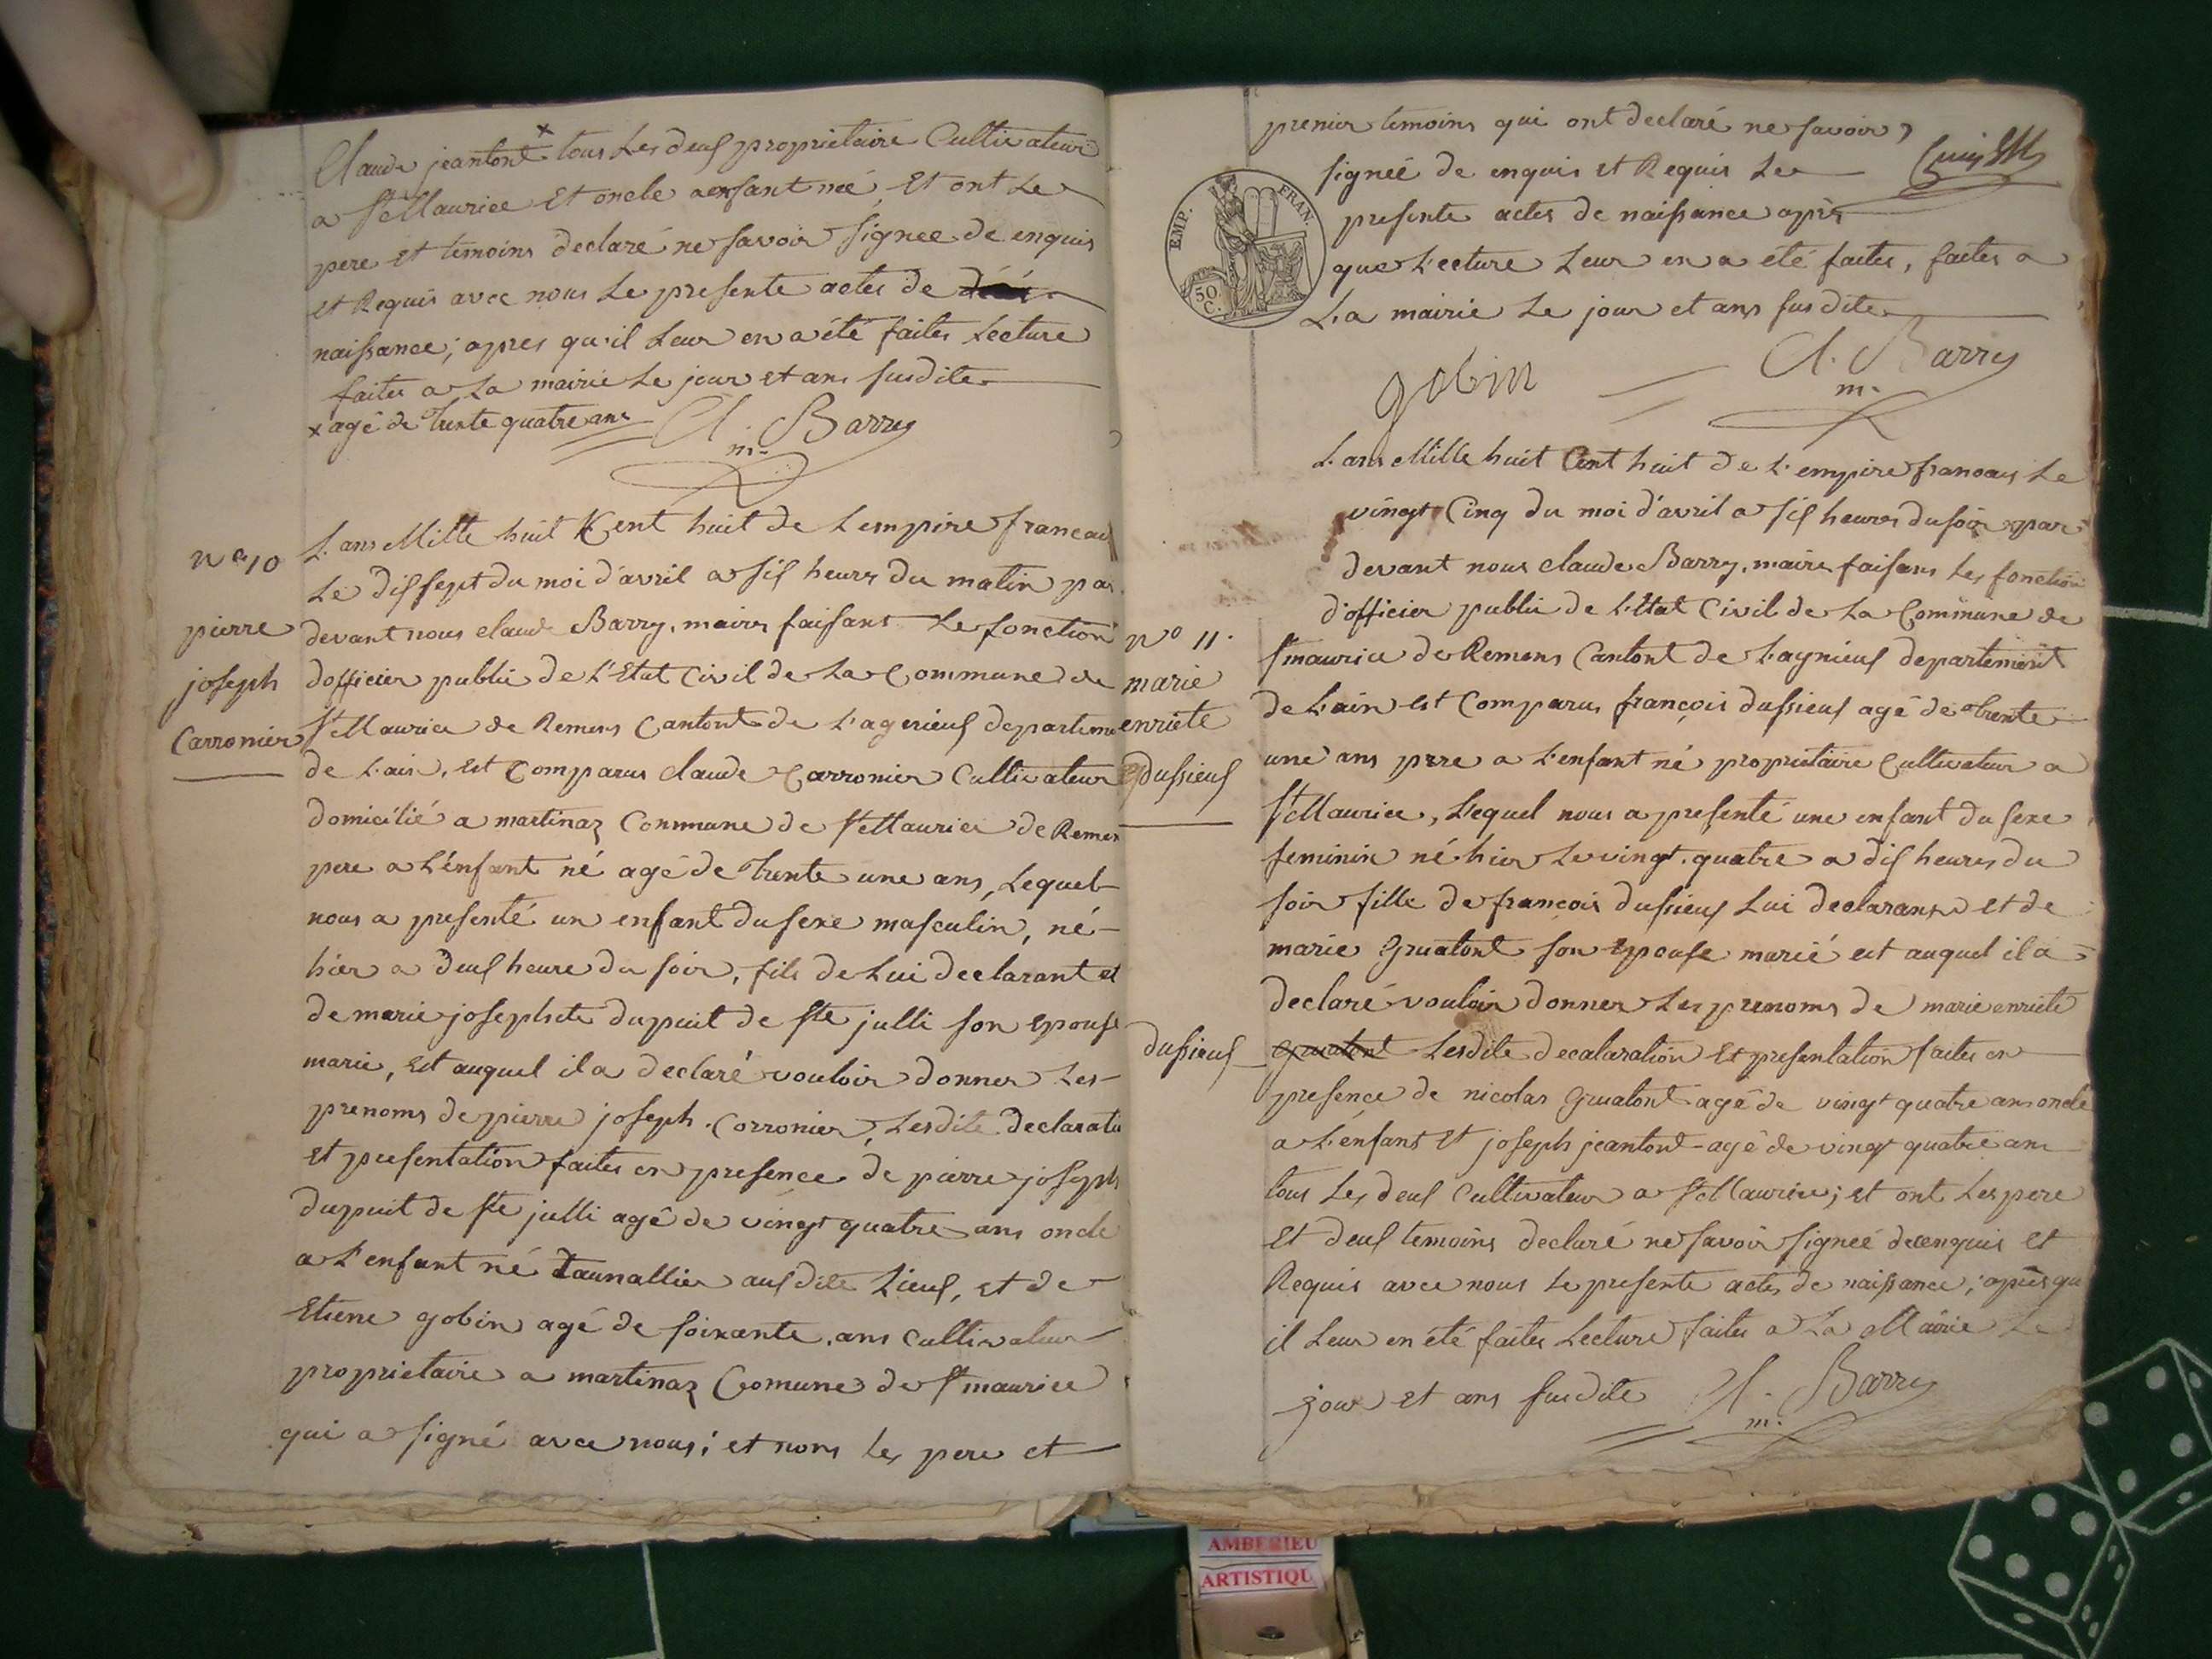 Claude jeantont x tous Les deux proprietaire Cultivateur
a St Maurice Et oncle a enfant neé, Et ont Le
pere et temoins declaré ne savoir signee de enquis
et Requis avec nous Le presente actes de
naissance; apres qu'il Leur en a été faites Lecture
faites a La mairie Le jour et ans susdite
x agé de trente quatre ans Cl. Barry
m.
n° 10
pierre
joseph
Carronier
L'ans Mille huit Cent huit de L'empire francais
Le dix sept du moi d'avril a six heures du matin par
devant nous claude Barry, maire faisant Le fonction
dofficier public de L'Etat Civil de La Commune de
St Maurice de Remens Cantont de Lagnieux departeme
de Lain, est Comparus claude Carronier Cultivateur
domicilié a martinaz Commune de St Maurice de Remen
pere a L'énfant né agé de trente une ans, Lequel
nous a presenté un enfant du sexe masculin, né
hier a deux heure du soir, fils de Lui declarant et
de marie josephete dupuit de Ste julli son Epouse
marie, Est auquel il a declaré vouloir donner Les
prenoms de pierre joseph. Corronier, Lesdite declaratio
et presentation faites en presence de pierre joseph
dupuit de Ste julli agé de vingt quatre ans oncle
a L'enfant né taunallier ausdite Lieux, et de
Etiene gobin agé de soixante ans cultivateur
proprietaire a martinaz Comune de St maurice
qui a signé avec nous; et nons les pere et
premier temoins qui ont declaré ne savoir
signeé de enquis et Requis Le
presente actes de naissance après
que L'ecture Leur en a été faites, faites a
La mairie Le jour et ans susdite
EMP. FRAN.
50
C.
gobin Cl. Barry
m.
n° 11.
marie
enriete
dussieux
L'ans Mille huit Cent huit de L'empire francais Le
vingt Cinq du moi d'avril a six heures du soir par
devant nous claude Barry, maire faisans Les fonction
d'officier public de L'Etat Civil de La Commune de
St maurice de Remens Cantont de Lagnieux departement
de Lain est Comparus françois dussieux agé de trente
une ans pere a L'enfant né proprietaire Cultivateur a
St Maurice, Lequel nous a presenté une enfant du sexe
feminin né hier Le vingt quatre a dix heures du
soir fille de françois dussieux Lui declarans et de
marie gruatont son Epouse marié est auquel il a
declaré vouloir donner Les prenoms de marie enriete
dussieux gruatont Lesdite decalaration Et presentation faites en
presence de nicolas gruatont agé de vingt quatre ans oncle
a L'enfant Et joseph jeantont agé de vingt quatre ans
tous Les deux Cultivateur a St Maurice; et ont Les pere
Et deux temoins declaré ne savoir signeé de enquis et
Requis avec nous Le presente actes de naissance; après qu
il Leur en été faites Lecture faites a La Mairie Le
jour et ans susdite Cl. Barry
m.
AMBERIEU
ARTISTIQU